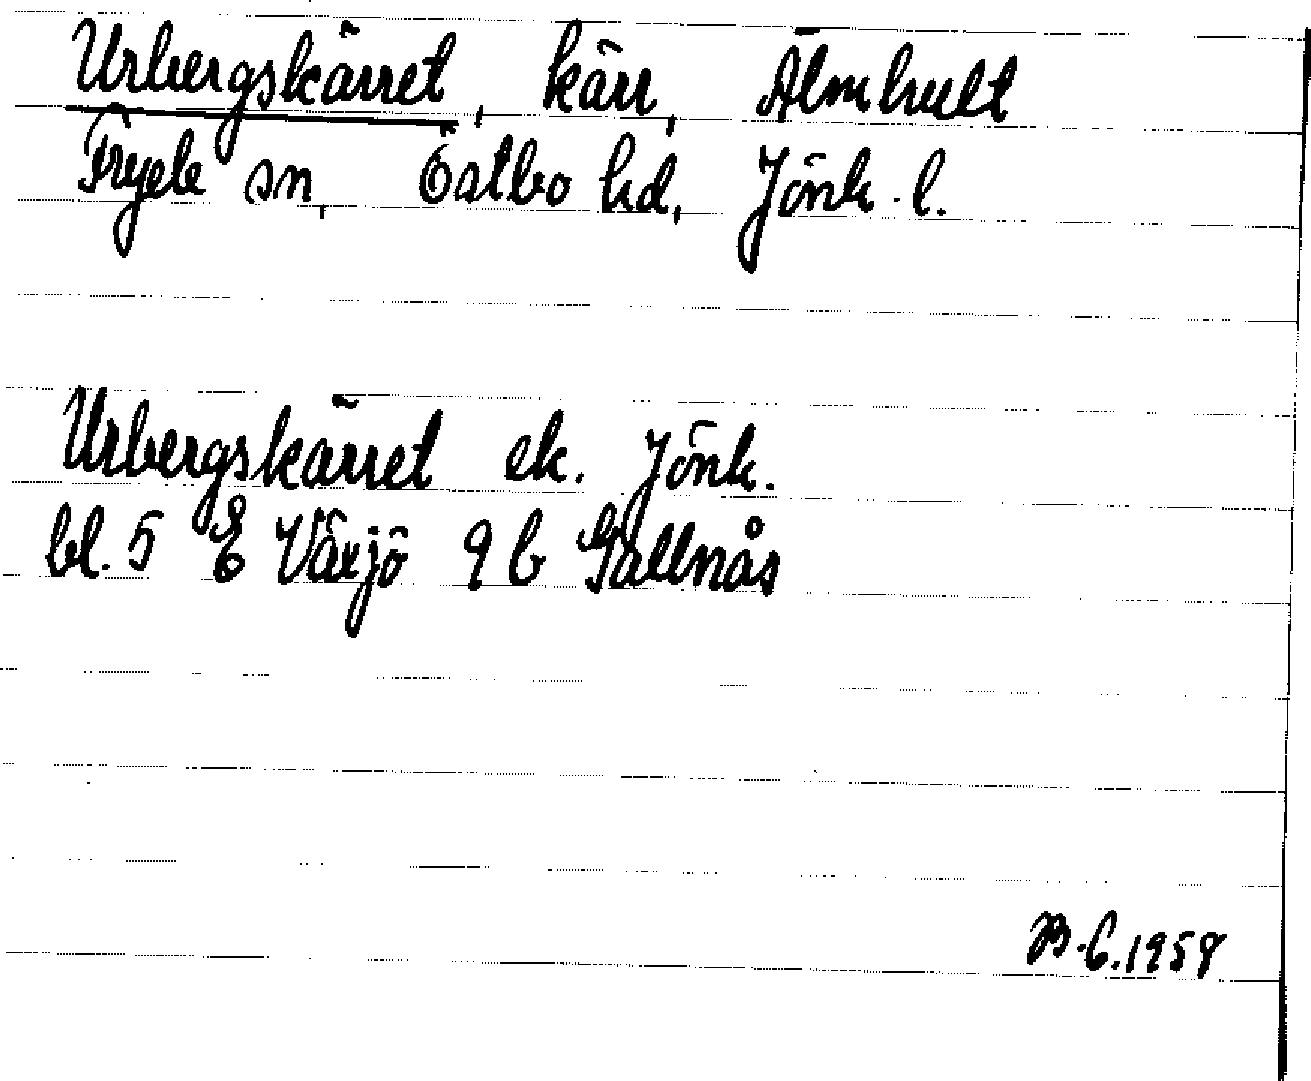 Urbergskärret, kärr, Älmhult
Fryele sn, Östbo hd, Jönk. l.
Urbergskärret ek. Jönk.
bl. 5 E Växjö 9 b Gällnås
B. G. 1958